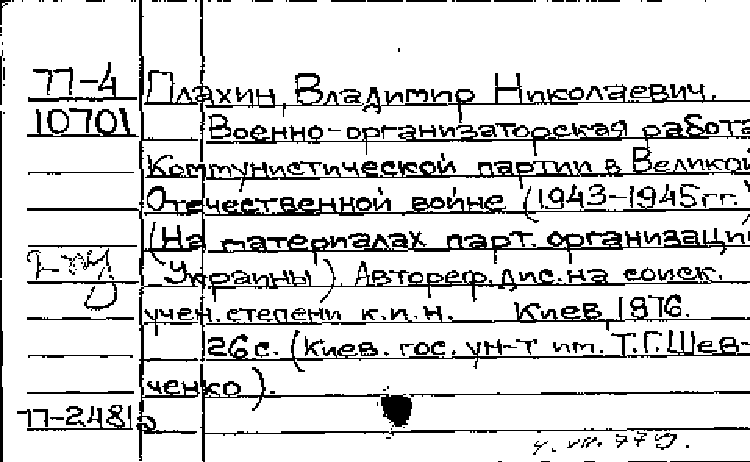 77-4 Плахин, Владимир Николаевич.
10701 Военно-организаторская работа
Коммунистической партии в Великой
Отечественной войне (1943-1945гг.)
(На материалах парт. организации
Украины). Автореф. дис. на соиск.
учен. степени к.и.н. Киев 1976.
26с. (Киев. гос. ун-т им. Т.Г. Шев-
ченко).
77-2481